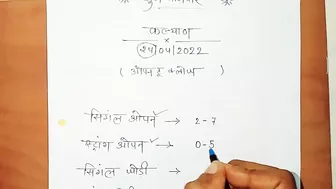 कल्याण
×
25/04/2022
(ओपन टू क्लोज)
सिंगल ओपन → 2-7
स्ट्रांग ओपन → 0-5
सिंगल जोडी →